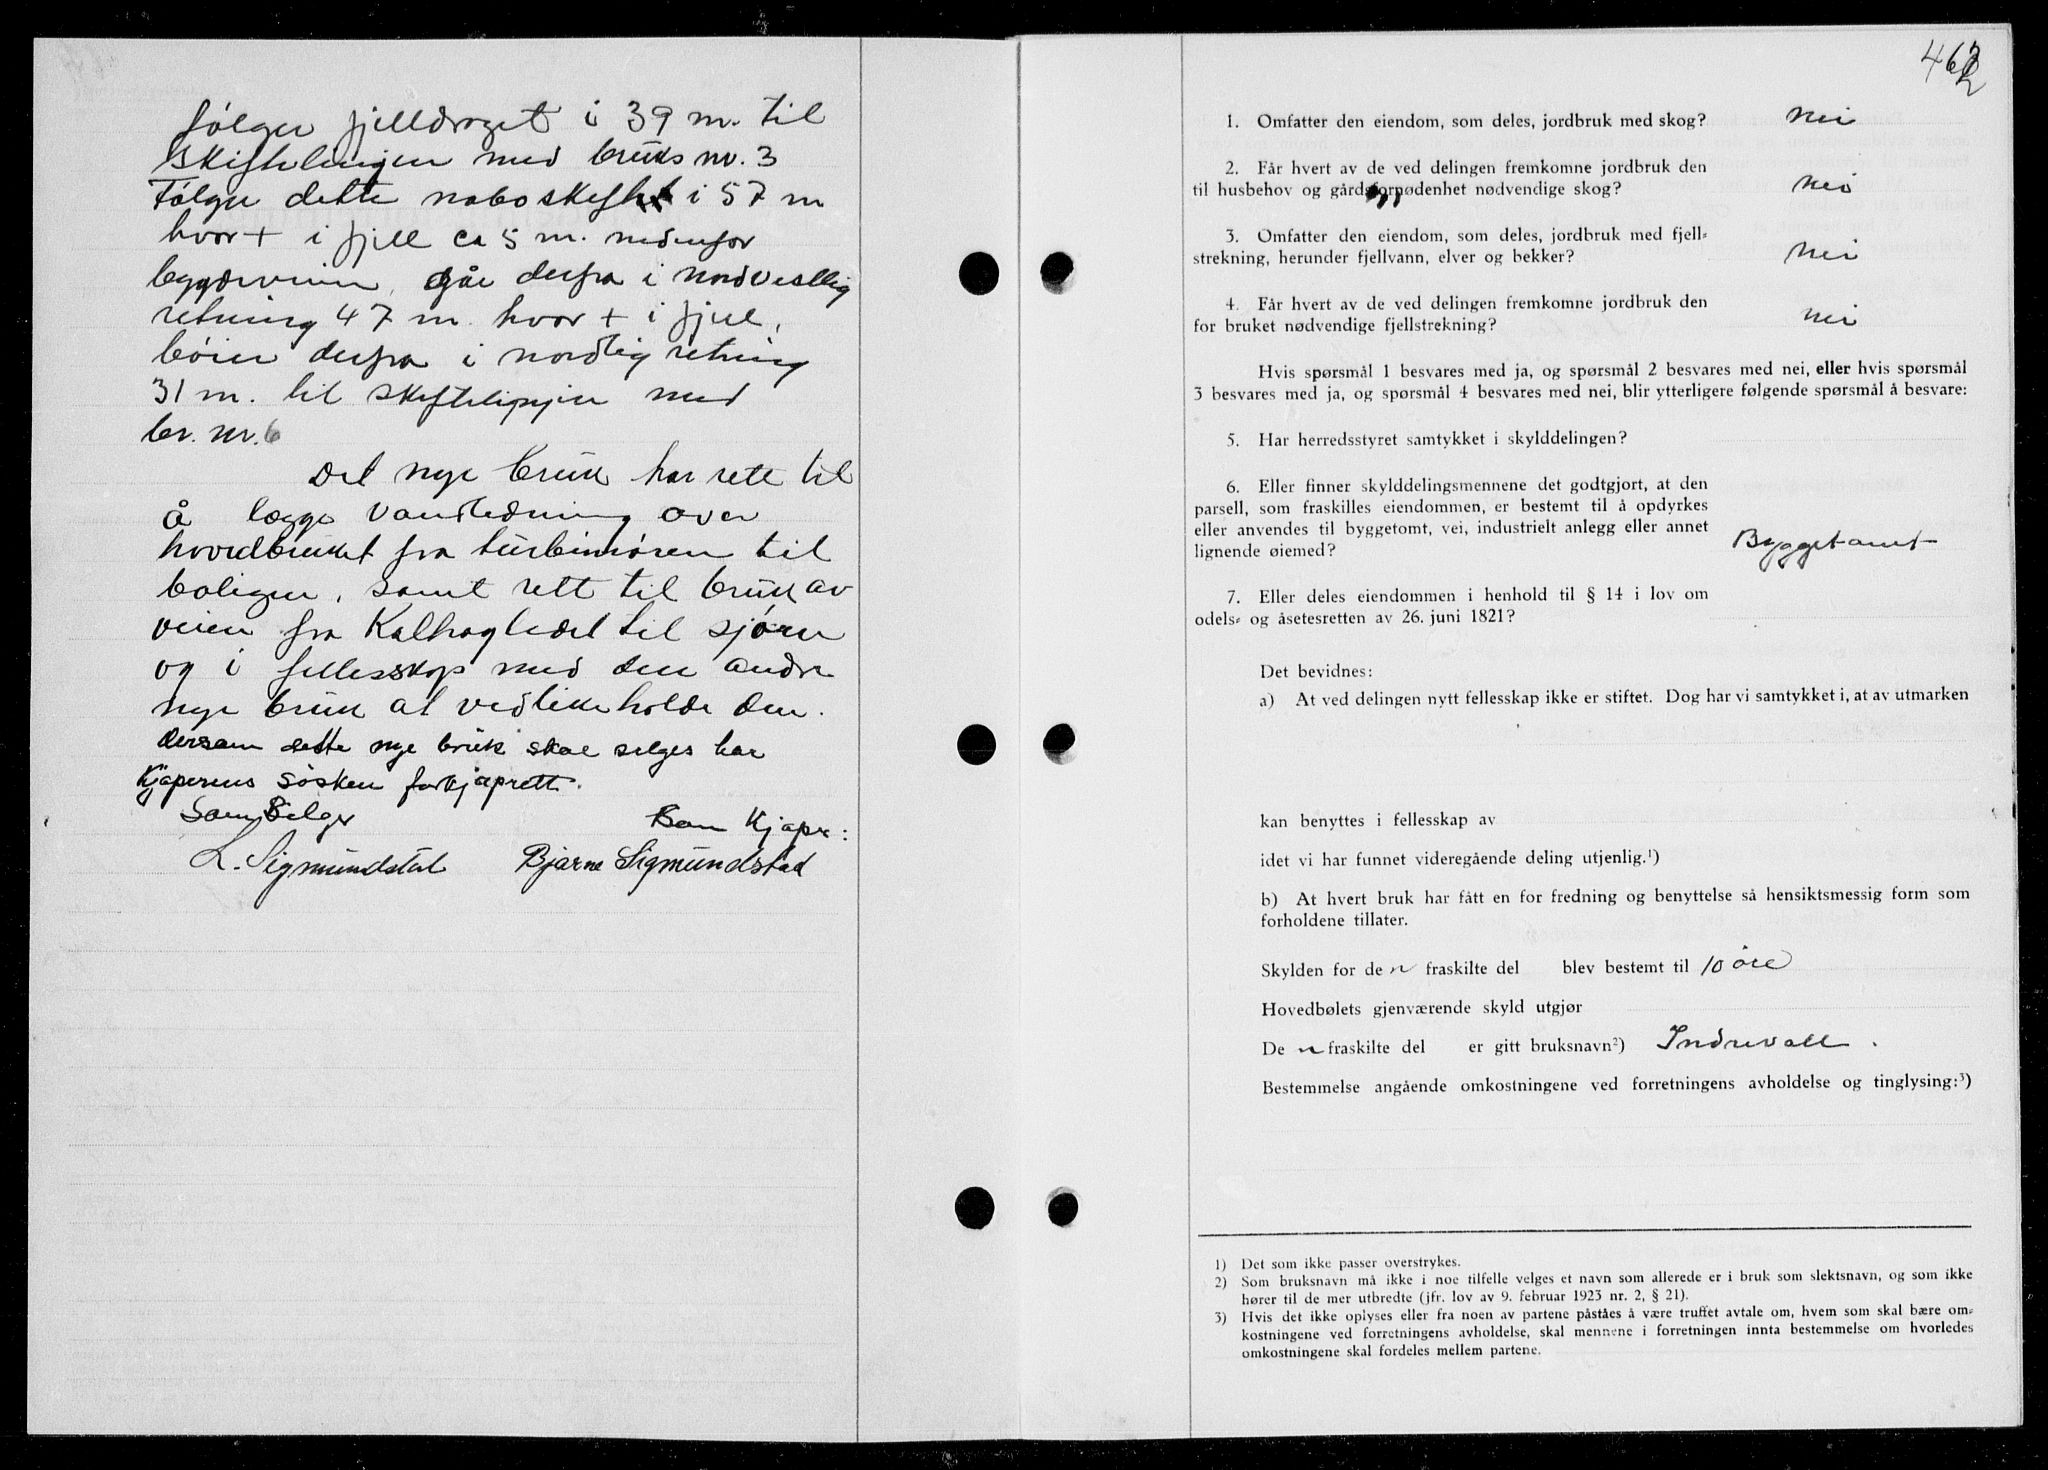 følger fjelldraget i 39 m. til
skiftelinjen med bruks nr. 3
Følger dette naboskifte i 57 m
hvor + i fjell ca 5 m. nedenfor
bygdeveien, går derfra i nordvestlig
retning 47 m. hvor + i fjell,
bøier derfra i nordlig retning
31 m. til skiftelinjen med
br. nr. 6
Det nye bruk har rett til
å legge vandledning over
hovedbruket fra turbinrøren til
boligen, samt rett til bruk av
veien fra Kalhagledet til sjøen
og i fellesskap med den andre
nye bruk at vedlikeholde den.
Dersom dette nye bruk skal selges har
Kjøperens søsken forkjøprett.
Som Selger Som Kjøper:
L. Sigmundstad Bjarne Sigmundstad
462
1. Omfatter den eiendom, som deles, jordbruk med skog? nei
2. Får hvert av de ved delingen fremkomne jordbruk den
til husbehov og gårdsfornødenhet nødvendige skog? nei
3. Omfatter den eiendom, som deles, jordbruk med fjell-
strekning, herunder fjellvann, elver og bekker? nei
4. Får hvert av de ved delingen fremkomne jordbruk den
for bruket nødvendige fjellstrekning? nei
Hvis spørsmål 1 besvares med ja, og spørsmål 2 besvares med nei, eller hvis spørsmål
3 besvares med ja, og spørsmål 4 besvares med nei, blir ytterligere følgende spørsmål å besvare:
5. Har herredsstyret samtykket i skylddelingen?
6. Eller finner skylddelingsmennene det godtgjort, at den
parsell, som fraskilles eiendommen, er bestemt til å opdyrkes
eller anvendes til byggetomt, vei, industrielt anlegg eller annet
lignende øiemed? Byggetomt
7. Eller deles eiendommen i henhold til § 14 i lov om
odels- og åsetesretten av 26. juni 1821?
Det bevidnes:
a) At ved delingen nytt fellesskap ikke er stiftet. Dog har vi samtykket i, at av utmarken
kan benyttes i fellesskap av
idet vi har funnet videregående deling utjenlig.¹)
b) At hvert bruk har fått en for fredning og benyttelse så hensiktsmessig form som
forholdene tillater.
Skylden for de n fraskilte del blev bestemt til 10 øre
Hovedbølets gjenværende skyld utgjør
De n fraskilte del er gitt bruksnavn²) Indrevoll.
Bestemmelse angående omkostningene ved forretningens avholdelse og tinglysing:³)
1) Det som ikke passer overstrykes.
2) Som bruksnavn må ikke i noe tilfelle velges et navn som allerede er i bruk som slektsnavn, og som ikke
hører til de mer utbredte (jfr. lov av 9. februar 1923 nr. 2, § 21).
3) Hvis det ikke oplyses eller fra noen av partene påståes å være truffet avtale om, hvem som skal bære om-
kostningene ved forretningens avholdelse, skal mennene i forretningen innta bestemmelse om hvorledes
omkostningene skal fordeles mellem partene.